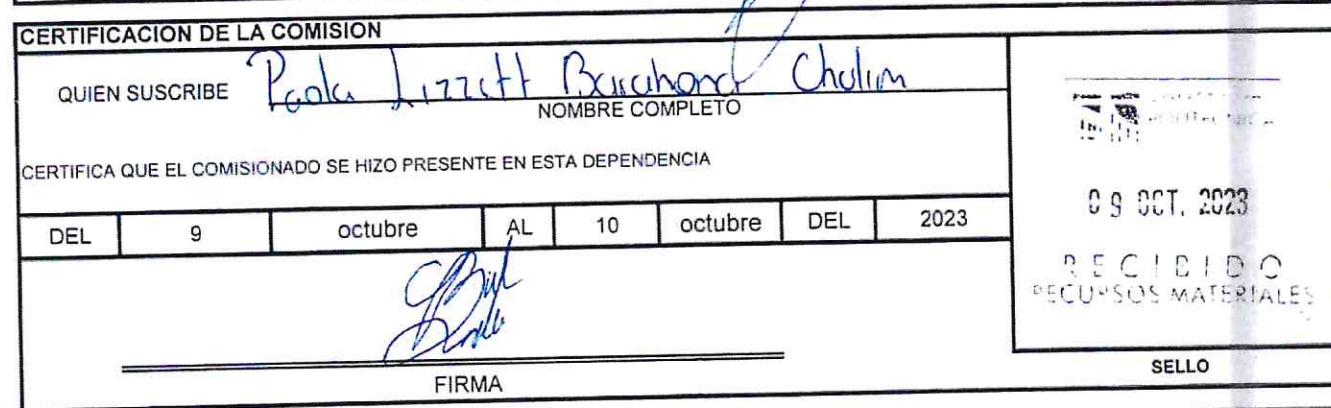 CERTIFICACION DE LA COMISION
QUIEN SUSCRIBE Paola Lizzett Barahona Cholim
NOMBRE COMPLETO
CERTIFICA QUE EL COMISIONADO SE HIZO PRESENTE EN ESTA DEPENDENCIA
DEL 9 octubre AL 10 octubre DEL 2023
FIRMA
09 OCT. 2023
RECIBIDO
RECURSOS MATERIALES
SELLO